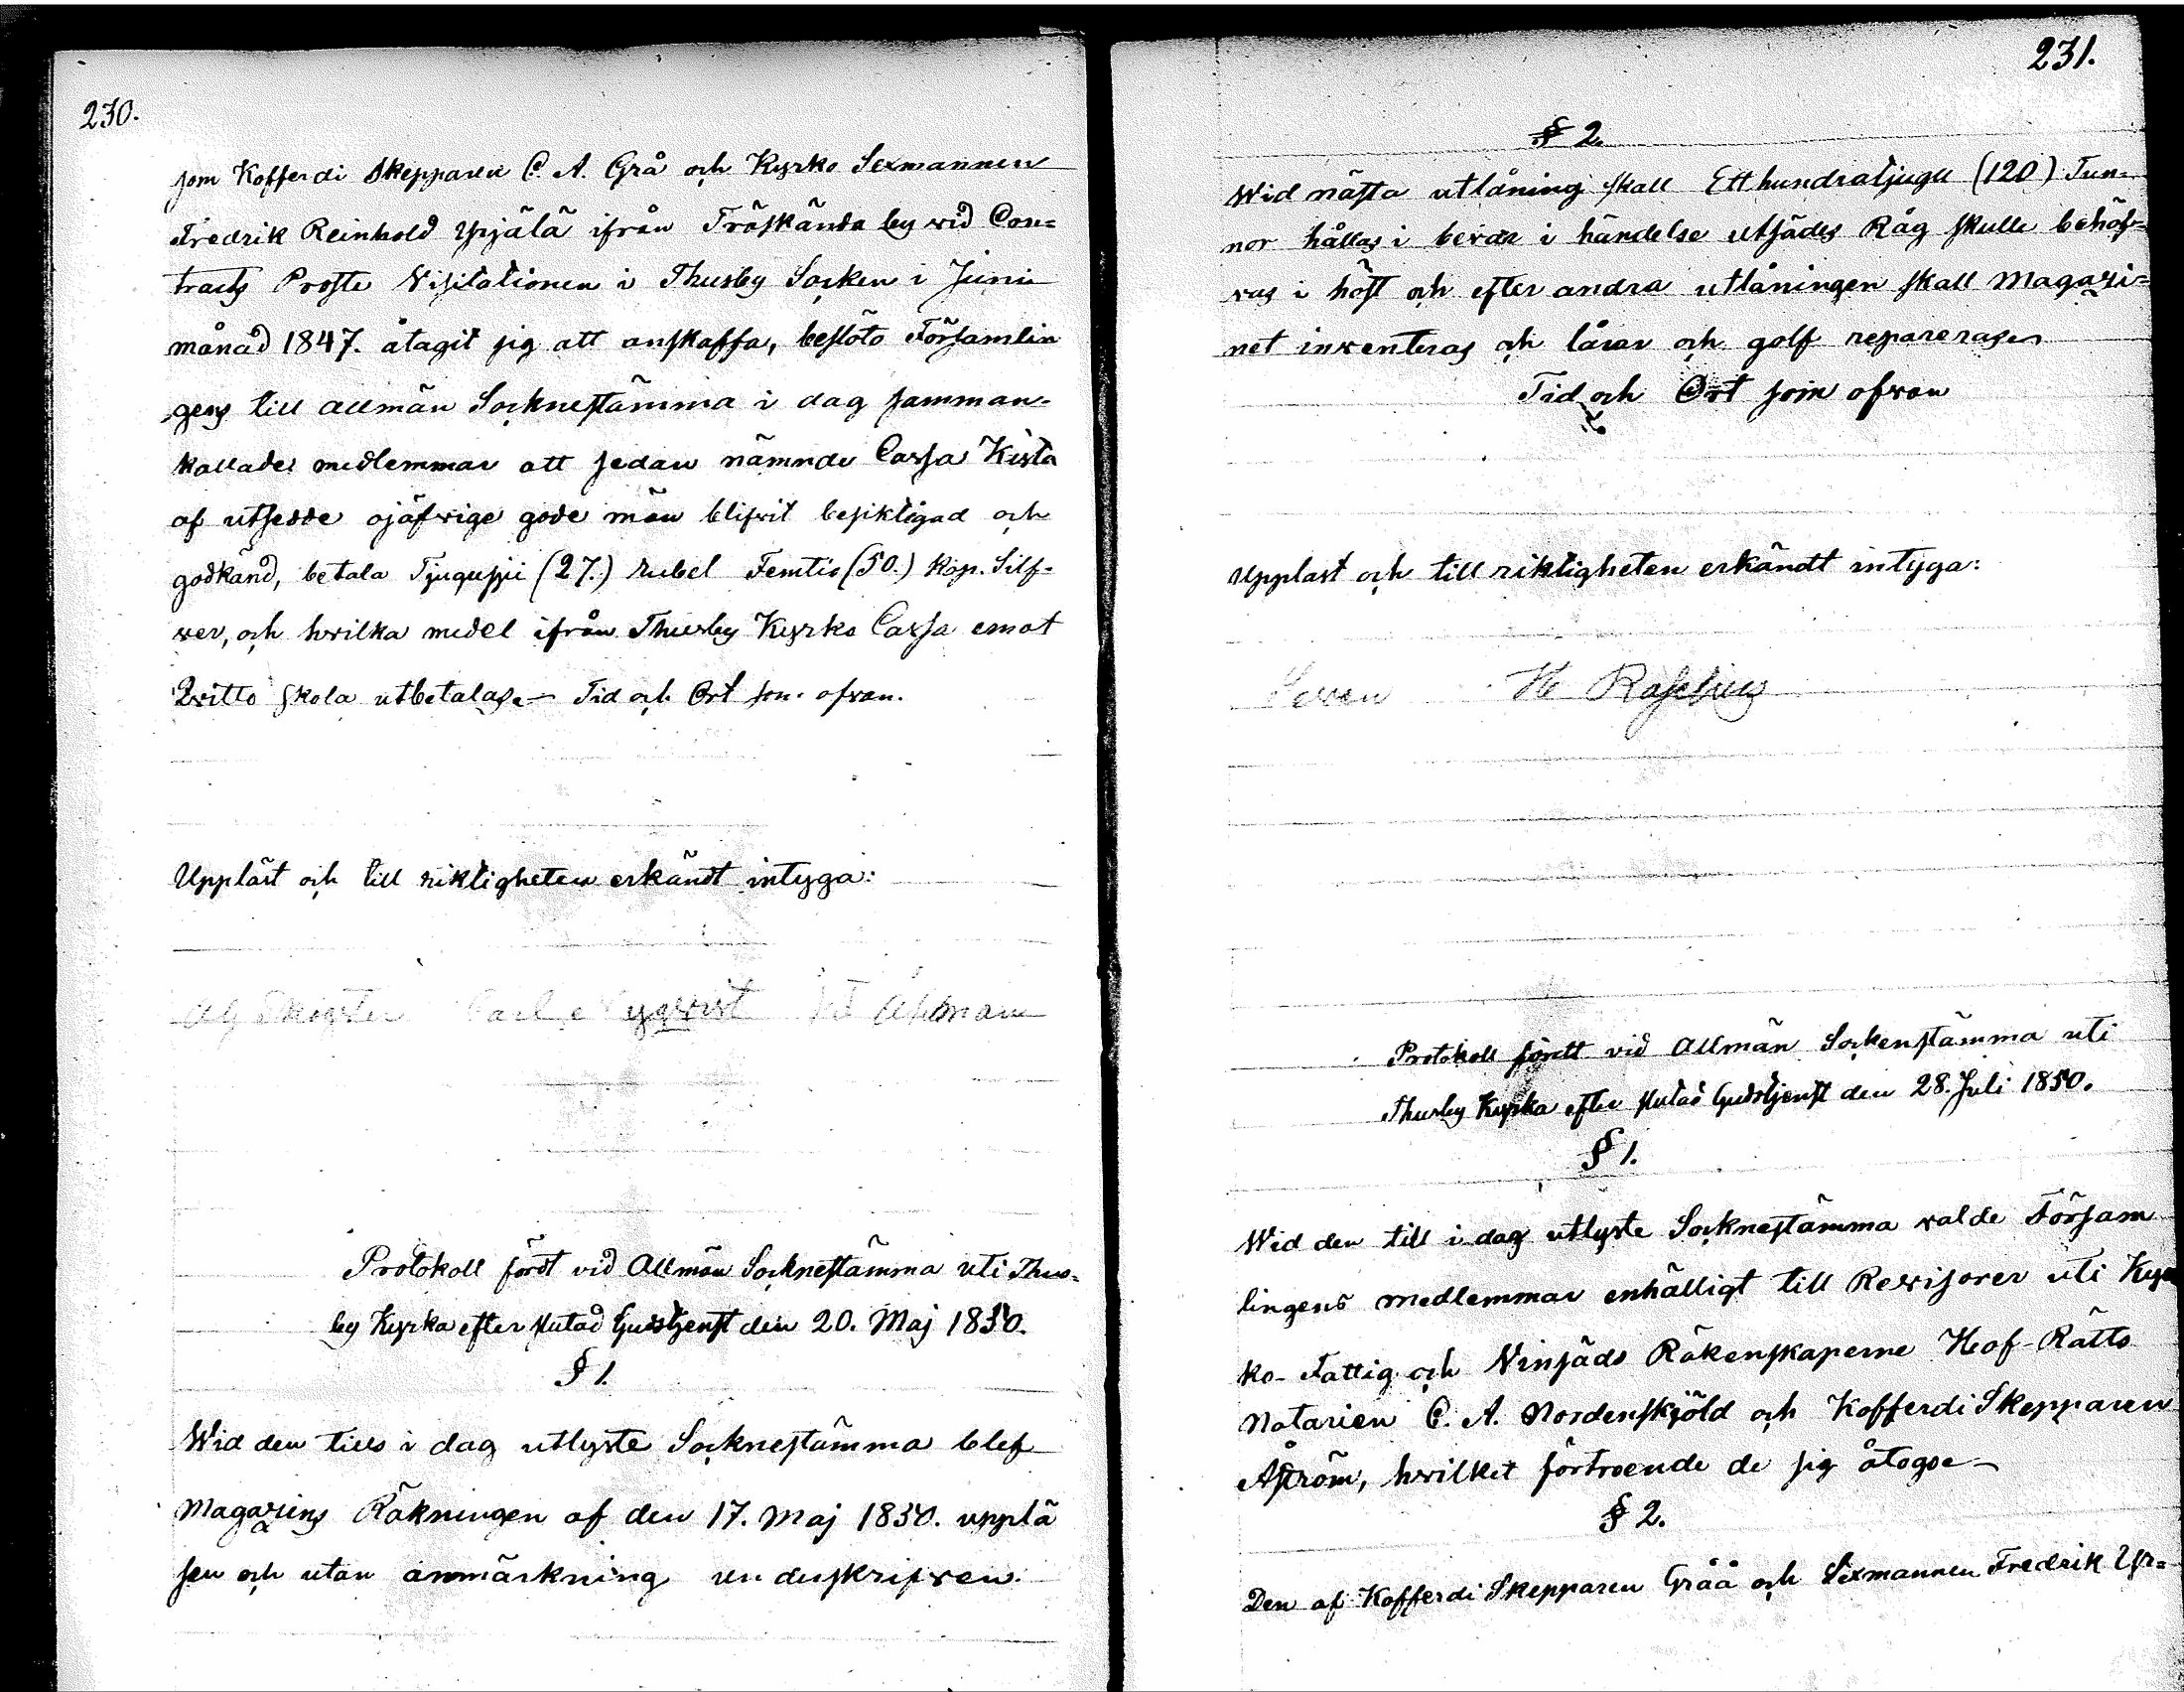 230.
som Kofferdi Skepparen C. A. Grå och Kyrko Sexmannen
Fredrik Reinhold Yrjälä ifrån Träskända by wid Con=
tracts Proste Visitationen i Thusby Socken i Juni
månad 1847. åtagit sig att anskaffa, beslöto Församlin
gens till allmän Socknestämma i dag samman-
kallades medlemmar att sedan nämnde Cassa Kista
af utsedde ojäfwige gode män blifvit besiktigad och
godkänd, betala Tjugusju (27.) rubel Femtio (50.) kop. Silf-
wer, och hwilka medel ifrån Thusby Kyrko Cassa emot
Qvitto skola utbetalas.— Tid och Ort som ofvan.
Uppläst och till riktigheten erkändt intyga:
Carl Nyqvist Åhman
Protokoll fördt vid Allmän Socknestämma uti Thus-
by Kyrka efter slutad Gudstjenst den 20. Maj 1850.
§ 1.
Wid den tills i dag utlyste Socknestämma blef
Magazins Räkningen af den 17. Maj 1850. upplä
sen och utan anmärkning underskrifven.
231.
§ 2.
Wid nästa utlåning skall Etthundratjugu (120) Tun-
nor hållas i bevar i händelse utsädes Råg skulle behöf-
vas i höst och efter andra utlåningen skall Magazi-
net inventeras och lårar och golf repareras.
Tid och Ort som ofvan
Uppläst och till riktigheten erkändt intyga:
Protokoll fördt vid Allmän Sockenstämma uti
Thusby Kyrka efter slutad Gudstjenst den 28. Juli 1850.
§ 1.
Wid den till i dag utlyste Socknestämma valde Försam
lingens medlemmar enhälligt till Revisorer uti Kyr
ko- Fattig och Vinsäds Räkenskaperne Hof-Rätts
Notarien C. A. Nordenskjöld och Kofferdi Skepparen
Åström, hwilket förtroende de sig åtogo.—
§ 2.
Den af Kofferdi Skepparen Gråå och Sexmannen Fredrik Yr=